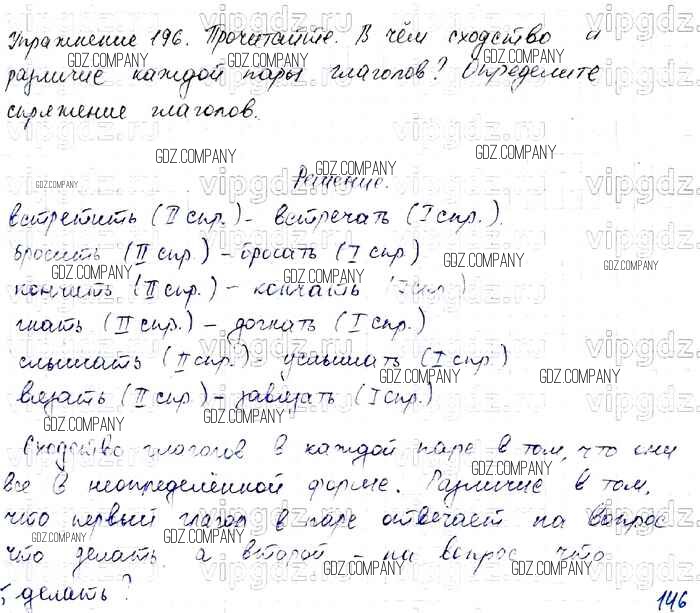 Упражнение 196. Прочитайте. В чём сходство и
различие каждой пары глаголов? Определите
спряжение глаголов.
Решение.
встретить (II спр.) – встречать (I спр.)
бросить (II спр.) – бросать (I спр)
кончить (II спр.) – кончать (I спр.)
гнать (II спр.) – догнать (I спр.)
слышать (II спр.) – услышать (I спр.)
вязать (II спр.) – завязать (I спр.)
Сходство глаголов в каждой паре в том, что они
все в неопределённой форме. Различие в том,
что первый глагол в паре отвечает на вопрос
что делать, а второй – на вопрос что
делать?
146
vipgdz.ru
GDZ.COMPANY